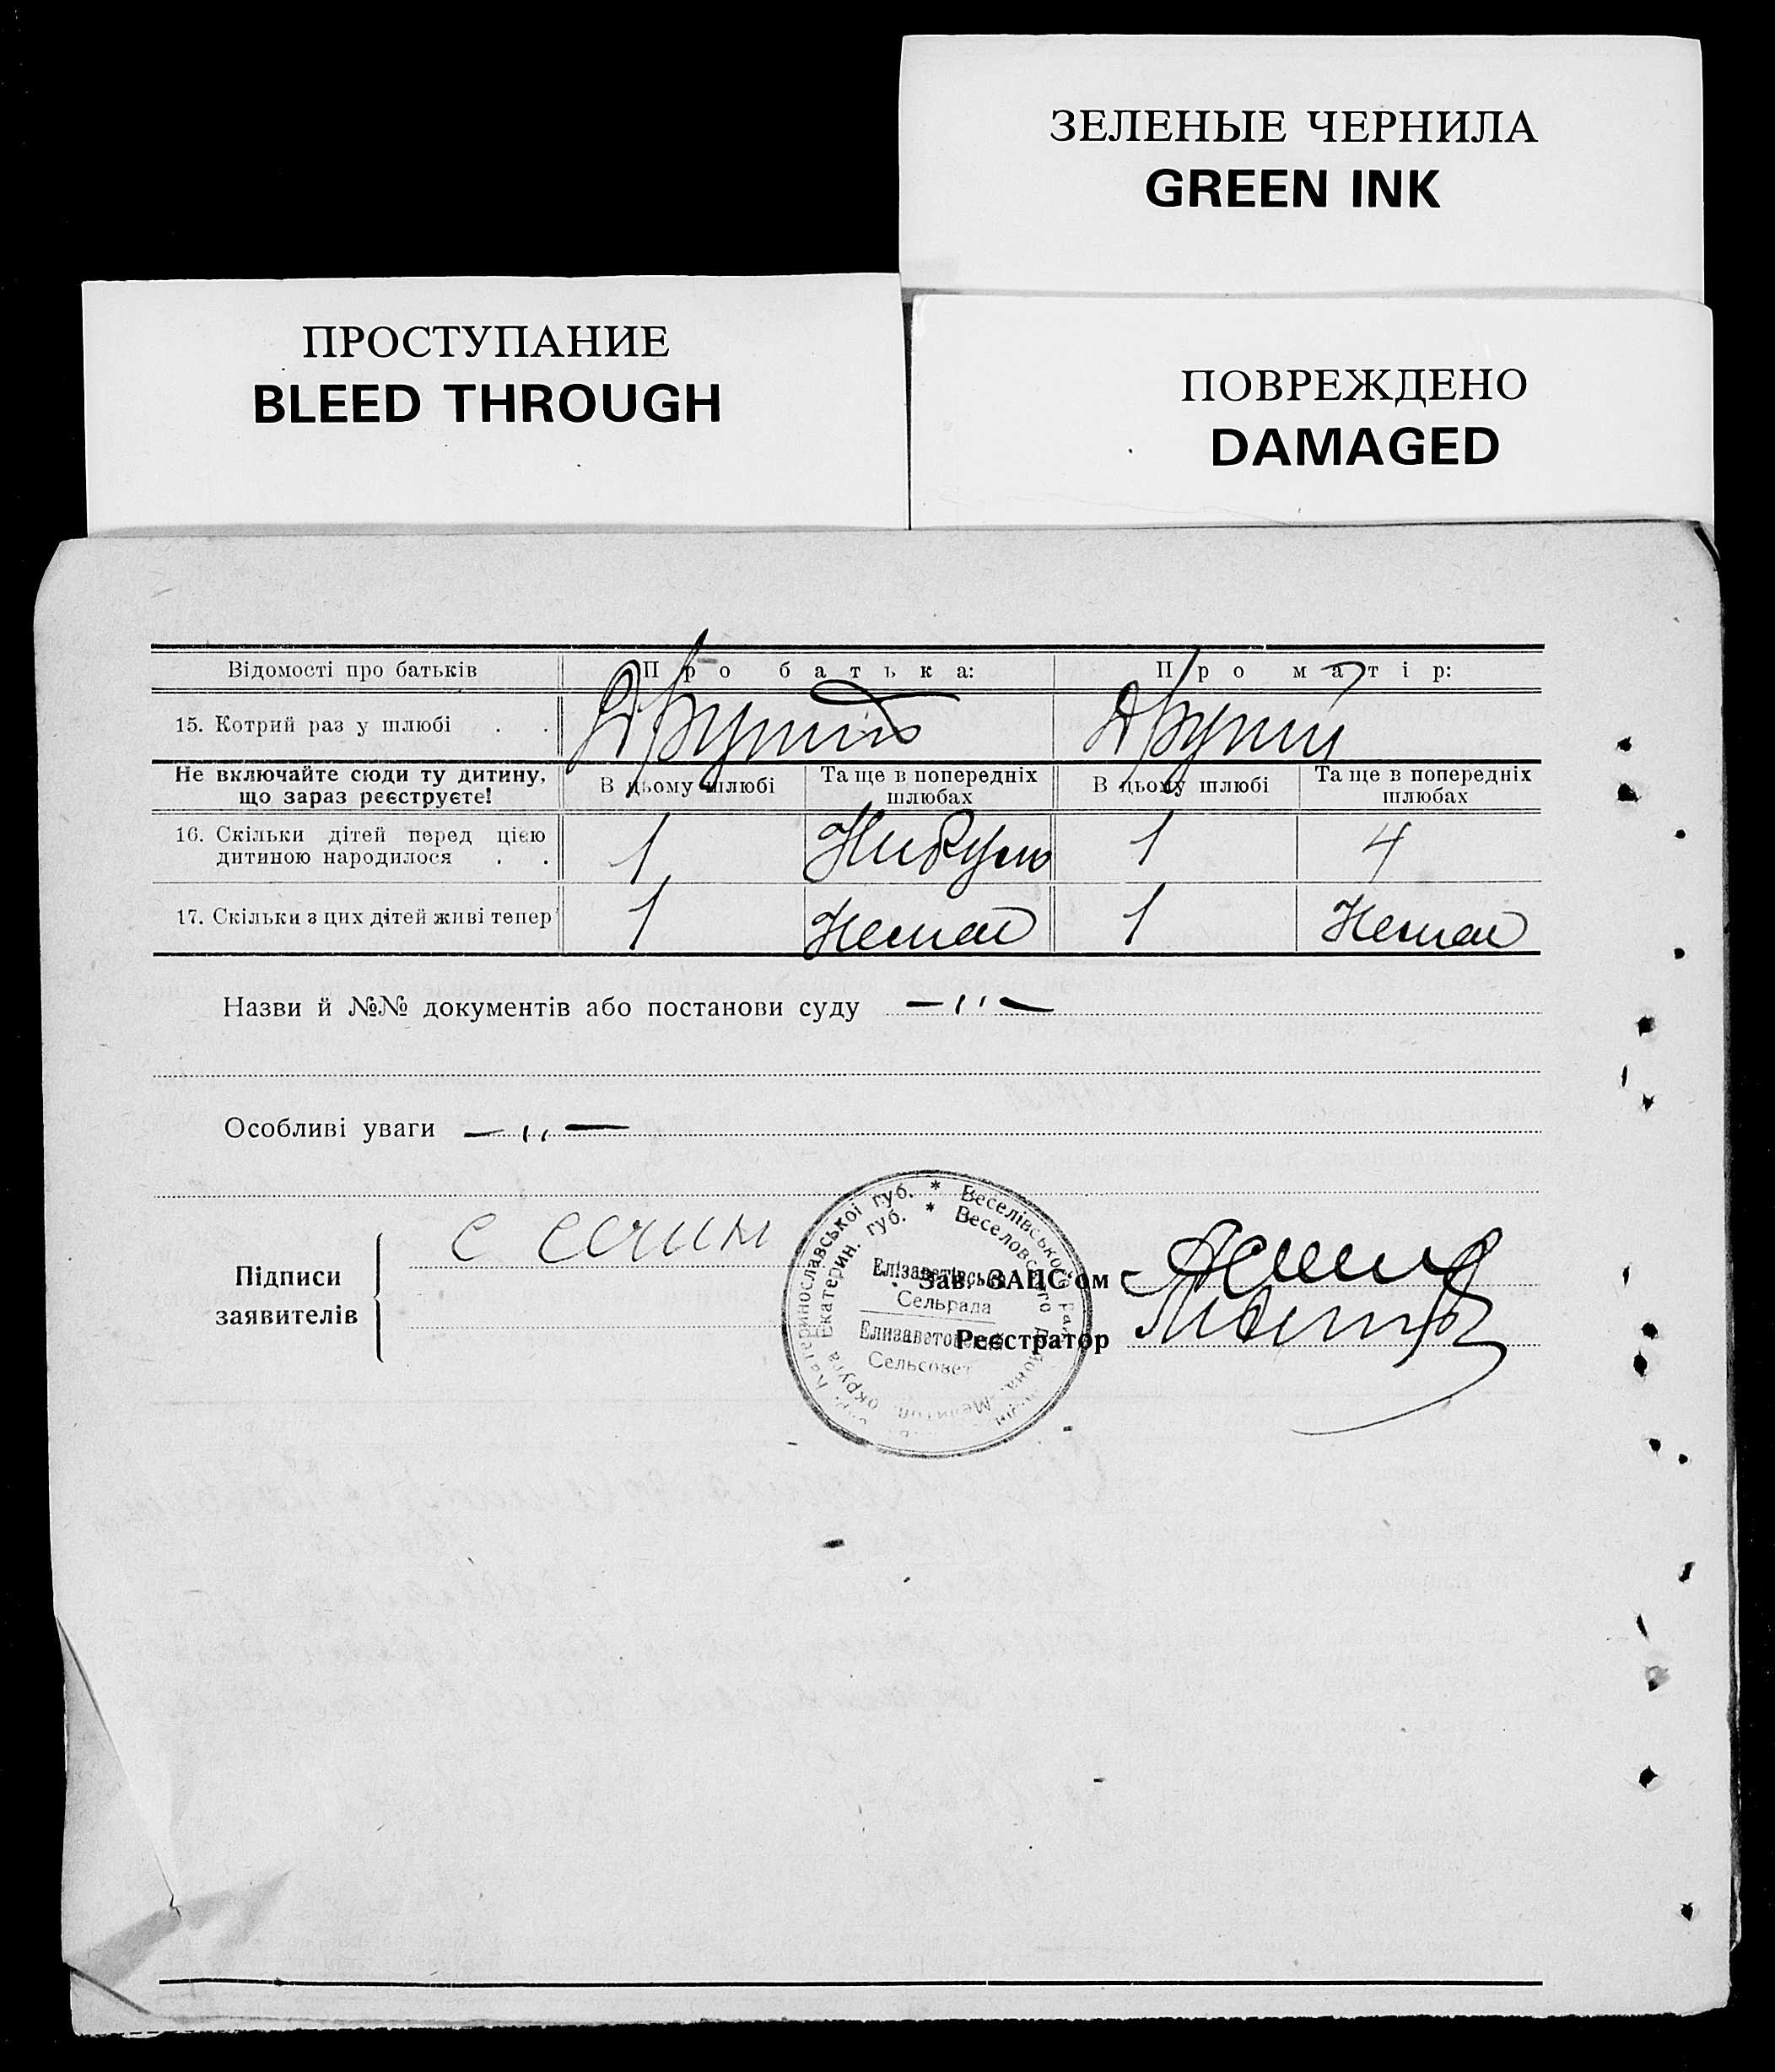 ЗЕЛЕНЫЕ ЧЕРНИЛА
GREEN INK
ПРОСТУПАНИЕ
BLEED THROUGH
ПОВРЕЖДЕНО
DAMAGED
Відомості про батьків Про батька: Про матір:
15. Котрий раз у шлюбі . . Другий
Не включайте сюди ту дитину,
що зараз реєструєте!
В цьому шлюбі Та ще в попередніх
шлюбах
В цьому шлюбі Та ще в попередніх
шлюбах
16. Скільки дітей перед цією
дитиною народилося . . 1 1 4
17. Скільки з цих дітей живі тепер 1 Немає 1 Немає
Назви й №№ документів або постанови суду — ıı —
Особливі уваги — ıı —
Підписи
заявителів
Катеринославської губ. * Веселівського
Екатерин. губ. * Веселовского Мелитоп. округа
Єлізаветівська
Сельрада
Елизаветовский
Сельсовет
Зав. ЗАПС'ом
Реєстратор